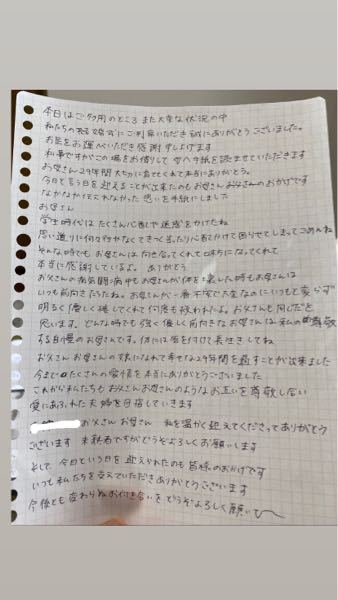 本日はご多用のところ また大変な状況の中
私たちの結婚式にご列席いただき誠にありがとうございました。
お足をお運びいただき感謝申し上げます
私事ですがこの場をお借りして 母へ手紙を読ませていただきます
お母さん29年間大切に育ててくれて本当にありがとう。
今日と言う日を迎えることが出来たのもお母さんお父さんのおかげです
なかなか伝えられなかった思いを手紙にしました
お母さん
学生時代はたくさん心配や迷惑をかけたね
思い通りに行かなくてきつく当たり心配かけて困らせてしまってごめんね
そんな時でもお母さんは向き合ってくれて味方になってくれて
本当に感謝しているよ。 ありがとう
お父さんの病気闘病中もお母さんが体を壊した時もお母さんは
いつも前向きだったね。お母さんが一番不安で大変なのにいつもと変らず
明るく優しく接してくれて何度も救われたよ。お父さんも同じだと
思います。どんな時でも強く優しく前向きなお母さんは私の尊敬
する自慢のお母さんです。体には気を付けて長生きしてね
お父さん お母さんの娘になれて幸せな29年間を過すことが出来ました
今までたくさんの愛情を本当にありがとうございました
これから私たちもお父さんお母さんのようなお互いを尊敬し合い
愛にあふれた夫婦を目指していきます
お父さん お母さん 私を温かく迎えてくださってありがとう
ございます 未熟者ですがどうぞよろしくお願いします
そして、今日という日を迎えられたのも皆様のおかげです
いつも私たちを支えていただきありがとうございます
今後とも変わらぬお付き合いをどうぞよろしく願い